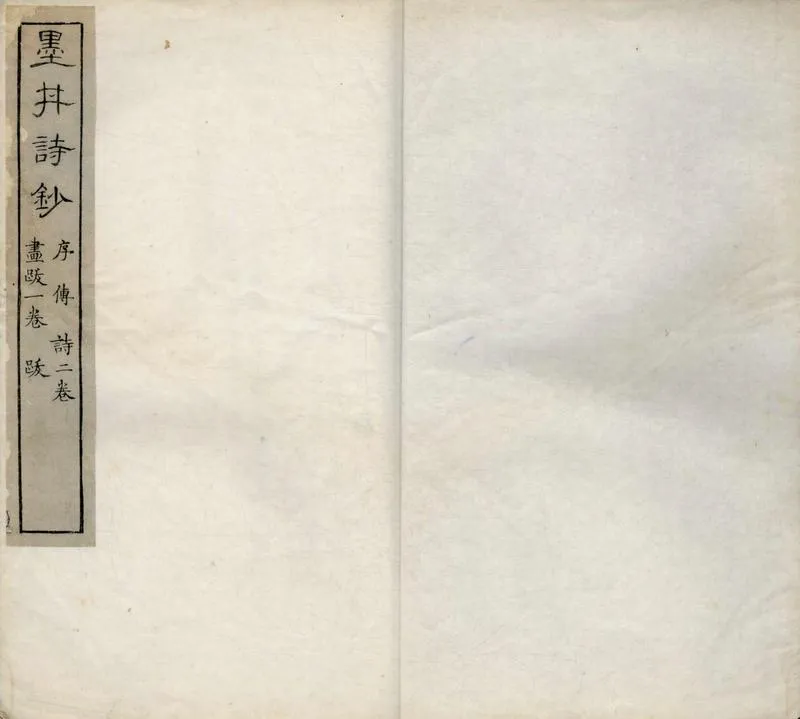 墨井詩鈔
序 傳 詩二卷
畫跋一卷 跋